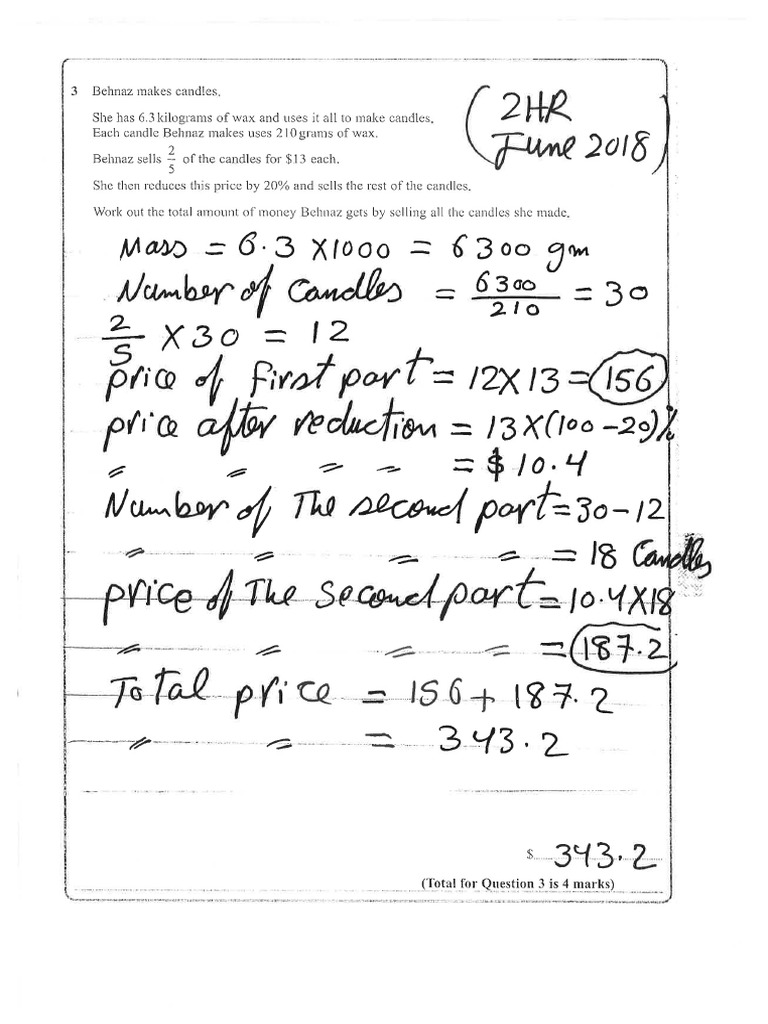 3 Behnaz makes candles.
(2HR
June 2018)
She has 6.3 kilograms of wax and uses it all to make candles.
Each candle Behnaz makes uses 210 grams of wax.
Behnaz sells 2/5 of the candles for $13 each.
She then reduces this price by 20% and sells the rest of the candles.
Work out the total amount of money Behnaz gets by selling all the candles she made.
Mass = 6.3 X1000 = 6300 gm
Number of Candles = 6300/210 = 30
2/5 X 30 = 12
price of first part = 12X13 = 156
price after reduction = 13X(100-20)%
〃 〃 〃 〃 = $10.4
Number of The second part = 30-12
〃 〃 〃 〃 = 18 Candles
price of The second part = 10.4X18
〃 〃 〃 〃 = 187.2
Total price = 156 + 187.2
〃 〃 = 343.2
$ 343.2
(Total for Question 3 is 4 marks)